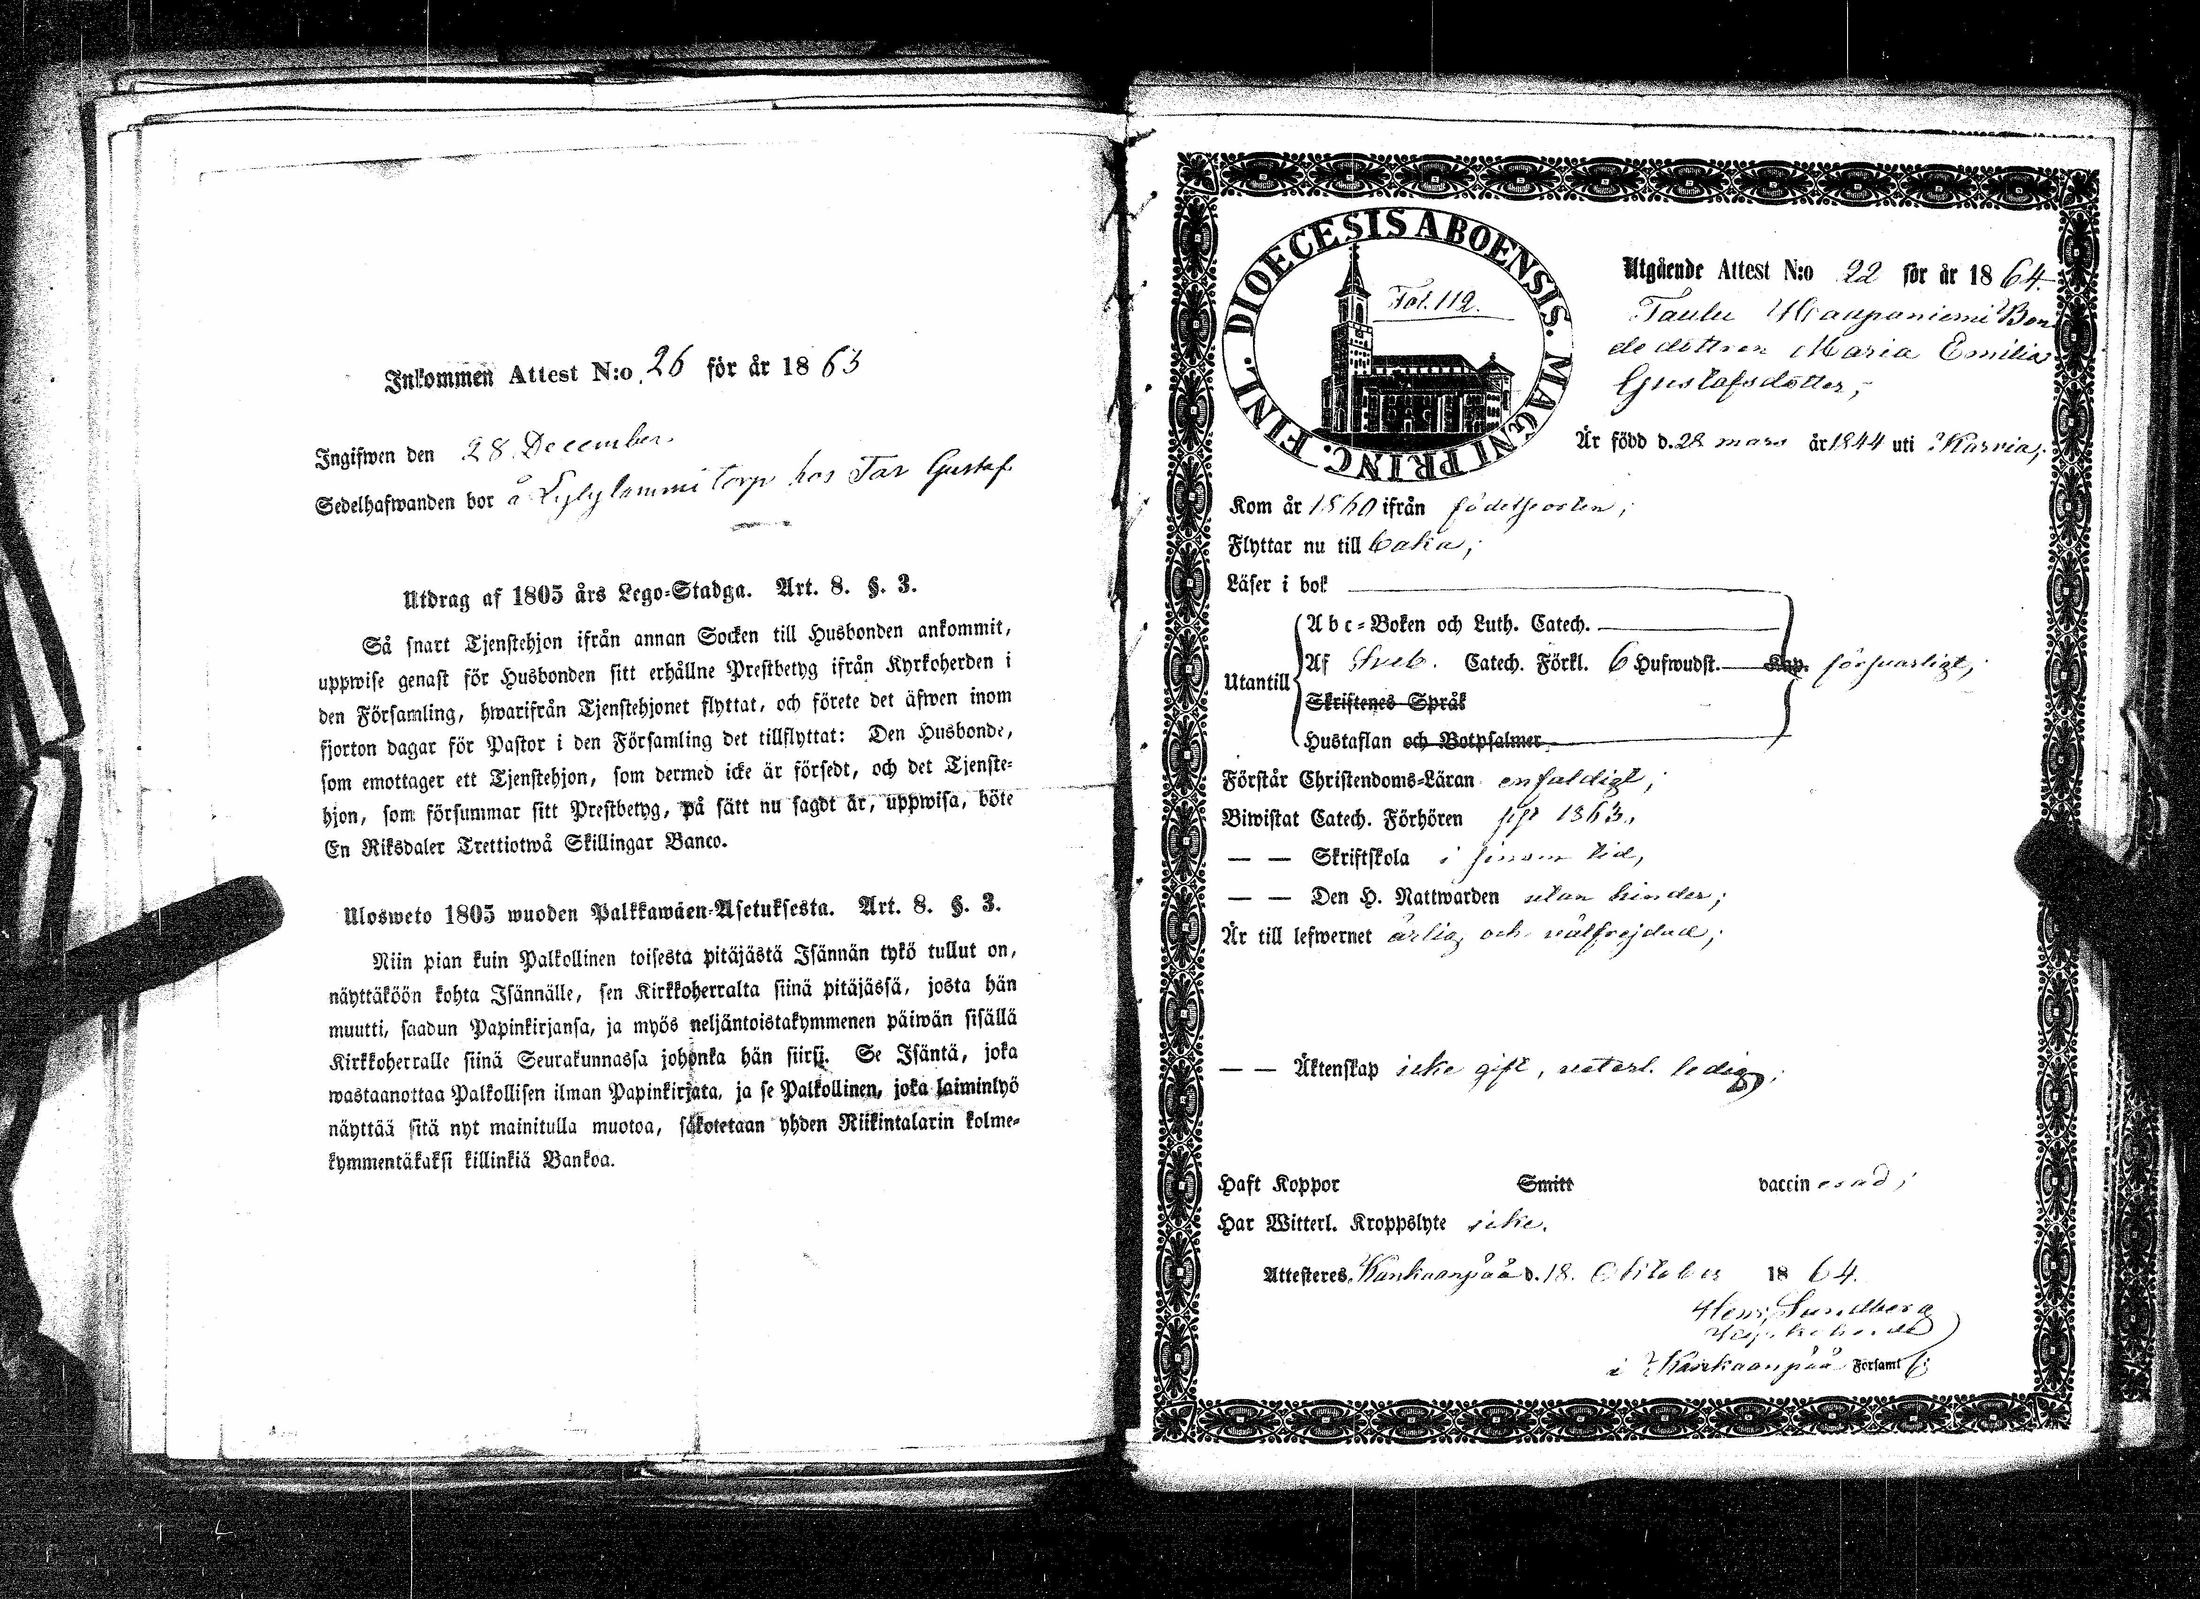 Inkommen Attest N:o 26 för år 1863
Ingifwen den 28 December.
Sedelhafwanden bor å Lylylammi torp hos Far Gustaf
Utdrag af 1805 års Lego-Stadga. Art. 8. §. 3.
Så snart Tjenstehjon ifrån annan Socken till Husbonden ankommit,
uppwise genast för Husbonden sitt erhållne Prestbetyg ifrån Kyrkoherden i
den Församling, hwarifrån Tjenstehjonet flyttat, och förete det äfwen inom
fjorton dagar för Pastor i den Församling det tillflyttat: Den Husbonde,
som emottager ett Tjenstehjon, som dermed icke är försedt, och det Tjenste-
hjon, som försummar sitt Prestbetyg, på sätt nu sagdt är, uppwisa, böte
En Riksdaler Trettiotwå Skillingar Banco.
Ulosweto 1805 wuoden Palkkawäen-Asetuksesta. Art. 8. §. 3.
Niin pian kuin Palkollinen toisesta pitäjästä Isännän tykö tullut on,
näyttäköön kohta Isännälle, sen Kirkkoherralta siinä pitäjässä, josta hän
muutti, saadun Papinkirjansa, ja myös neljäntoistakymmenen päiwän sisällä
Kirkkoherralle siinä Seurakunnassa johonka hän siirsi. Se Isäntä, joka
wastaanottaa Palkollisen ilman Papinkirjata, ja se Palkollinen, joka laiminlyö
näyttää sitä nyt mainitulla muotoa, sakotetaan yhden Riikintalarin kolme-
kymmentäkaksi killinkiä Bankoa.
DIOECESIS ABOENSIS. MAGNI PRINC. FINL.
Fol. 112.
Utgående Attest N:o 22 för år 1864
Taulu Haapaniemi Bon
dedottren Maria Emilia
Gustafsdotter;
Är född d. 28 mars år 1844 uti Karvia;
Kom år 1860 ifrån födelseorten;
Flyttar nu till
Läser i bok
Abc-Boken och Luth. Catech.
Utantill Af Sveb. Catech. Förkl. 6 Hufwudst. Kap. försvarligt;
Skriftenes Språk
Hustaflan och Botpsalmer
Förstår Christendoms-Läran enfaldigt;
Biwistat Catech. Förhören sist 1863.
— — Skriftskola i sinom tid,
— — Den H. Nattwarden utan hinder;
Är till lefwernet ärlig och välfrejdad;
— — Äktenskap icke gift, veterl. ledig;
Haft Koppor Smitt vaccinerad;
Har Witterl. Kroppslyte icke.
Attesteres, Kankaanpää d. 18. Oktober 1864.
Henr. Sundberg
Kyrkoherde
i Kankaanpää Församl